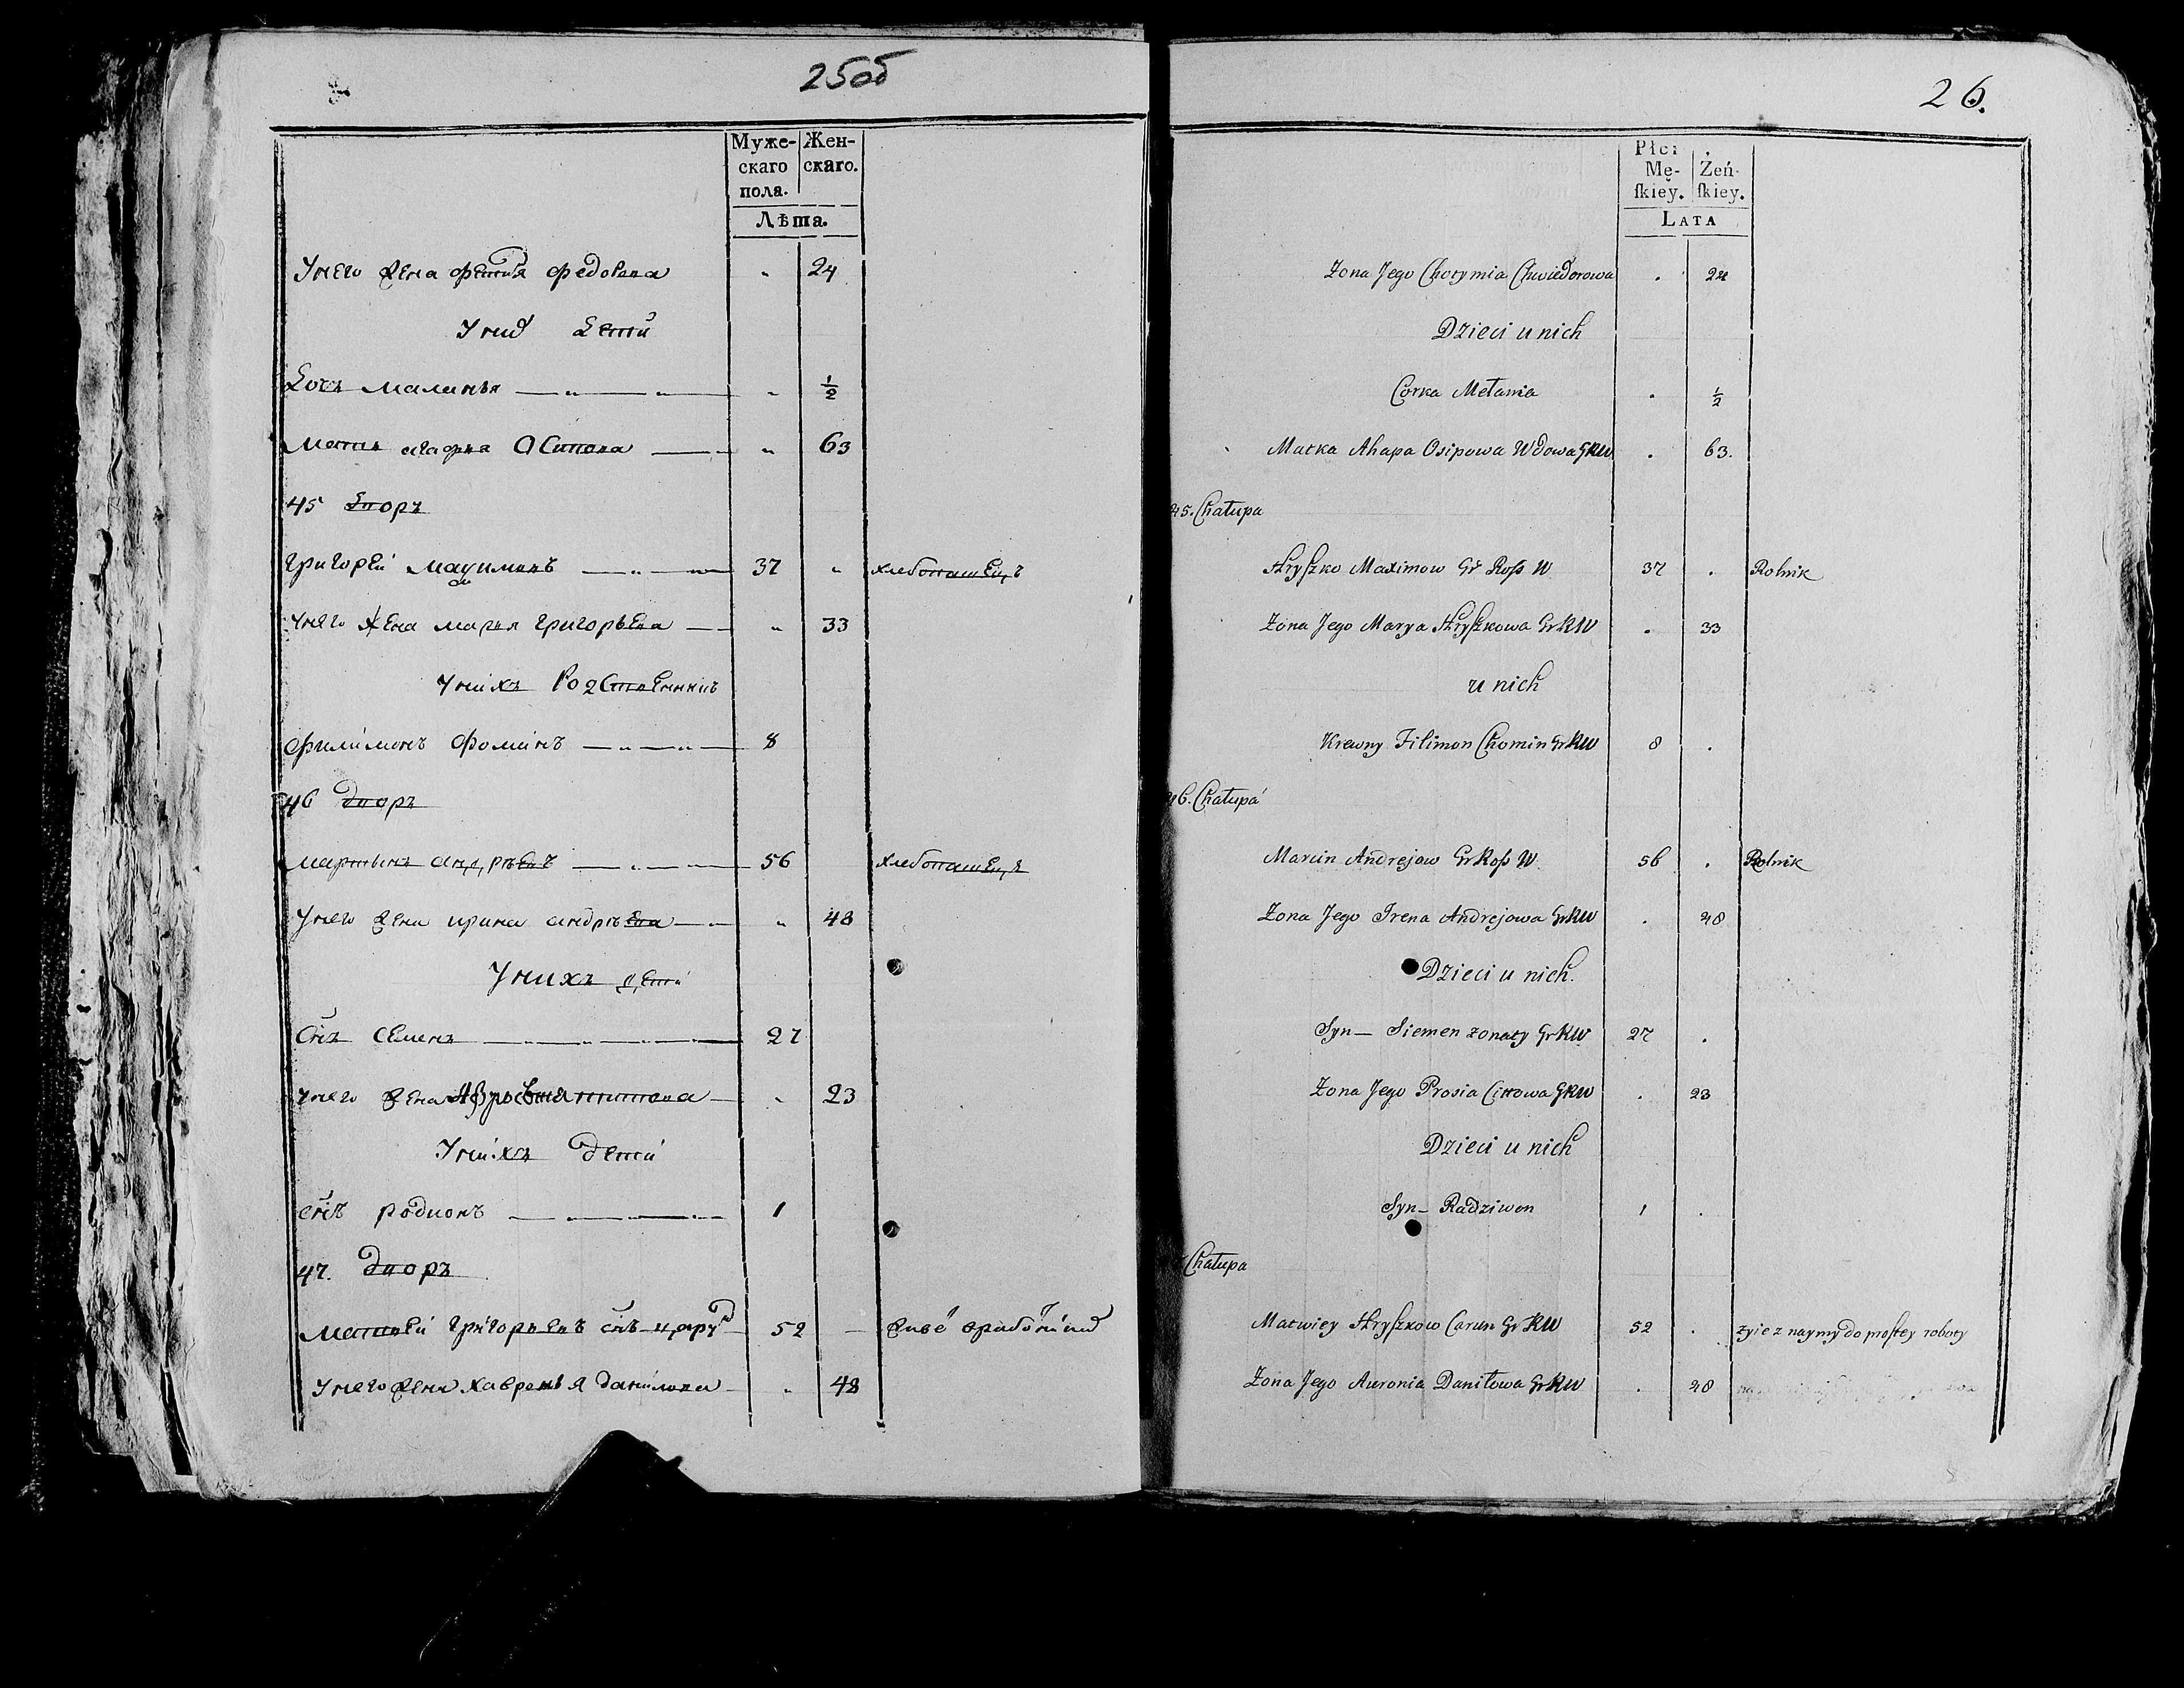 25об
Муже- Жен-
скаго скаго.
пола.
Лѣта.
У него жена Фетинья Федорова " 24
У них дети
Дочь Маланья " ½
Мать Агафья Осипова " 63
45 дворъ
Григорей Мацимовъ 37 " хлебопашецъ
У него жена Марья Григорьева " 33
У нихъ родственникъ
Филимонъ Фоминъ 8
46 дворъ
Мартынъ Андрѣевъ 56 хлебопашецъ
У него жена Ирина Андрѣева " 48
У нихъ дети
Снъ Семенъ 27
У него жена Афросинья Титова " 23
У нихъ дети
Снъ Родионъ 1
47. дворъ
Матвей Григорьевъ снъ Царун 52 живе в работники
У него жена Хавренья Данилова " 48
26.
Płci
Mę- Żeń-
ſkiey. ſkiey.
LATA
Zona Jego Chotymia Chwiedorowa . 24
Dzieci u nich
Corka Mełania . ½
Matka Ahapa Osipowa Wdowa GRW . 63.
45. Chałupa
Hryſzko Maximow Gr Roſs W 37 . Rolnik
Zona Jego Marya Hryſzkowa GrRW . 33
u nich
Krewny Filimon Chomin GrRW 8 .
46. Chałupa
Marcin Andrejow GrRoſs W 56 . Rolnik
Zona Jego Irena Andrejowa GrRW . 48
Dzieci u nich.
Syn — Siemen zonaty GrRW 27 .
Zona Jego Prosia Citowa GRW . 23
Dzieci u nich
Syn — Radziwon 1 .
Chałupa
Matwiey Hryſzkow Carun GrRW 52 . zyie z naymy do proſtey roboty
Zona Jego Auronia Daniłowa GrRW . 48